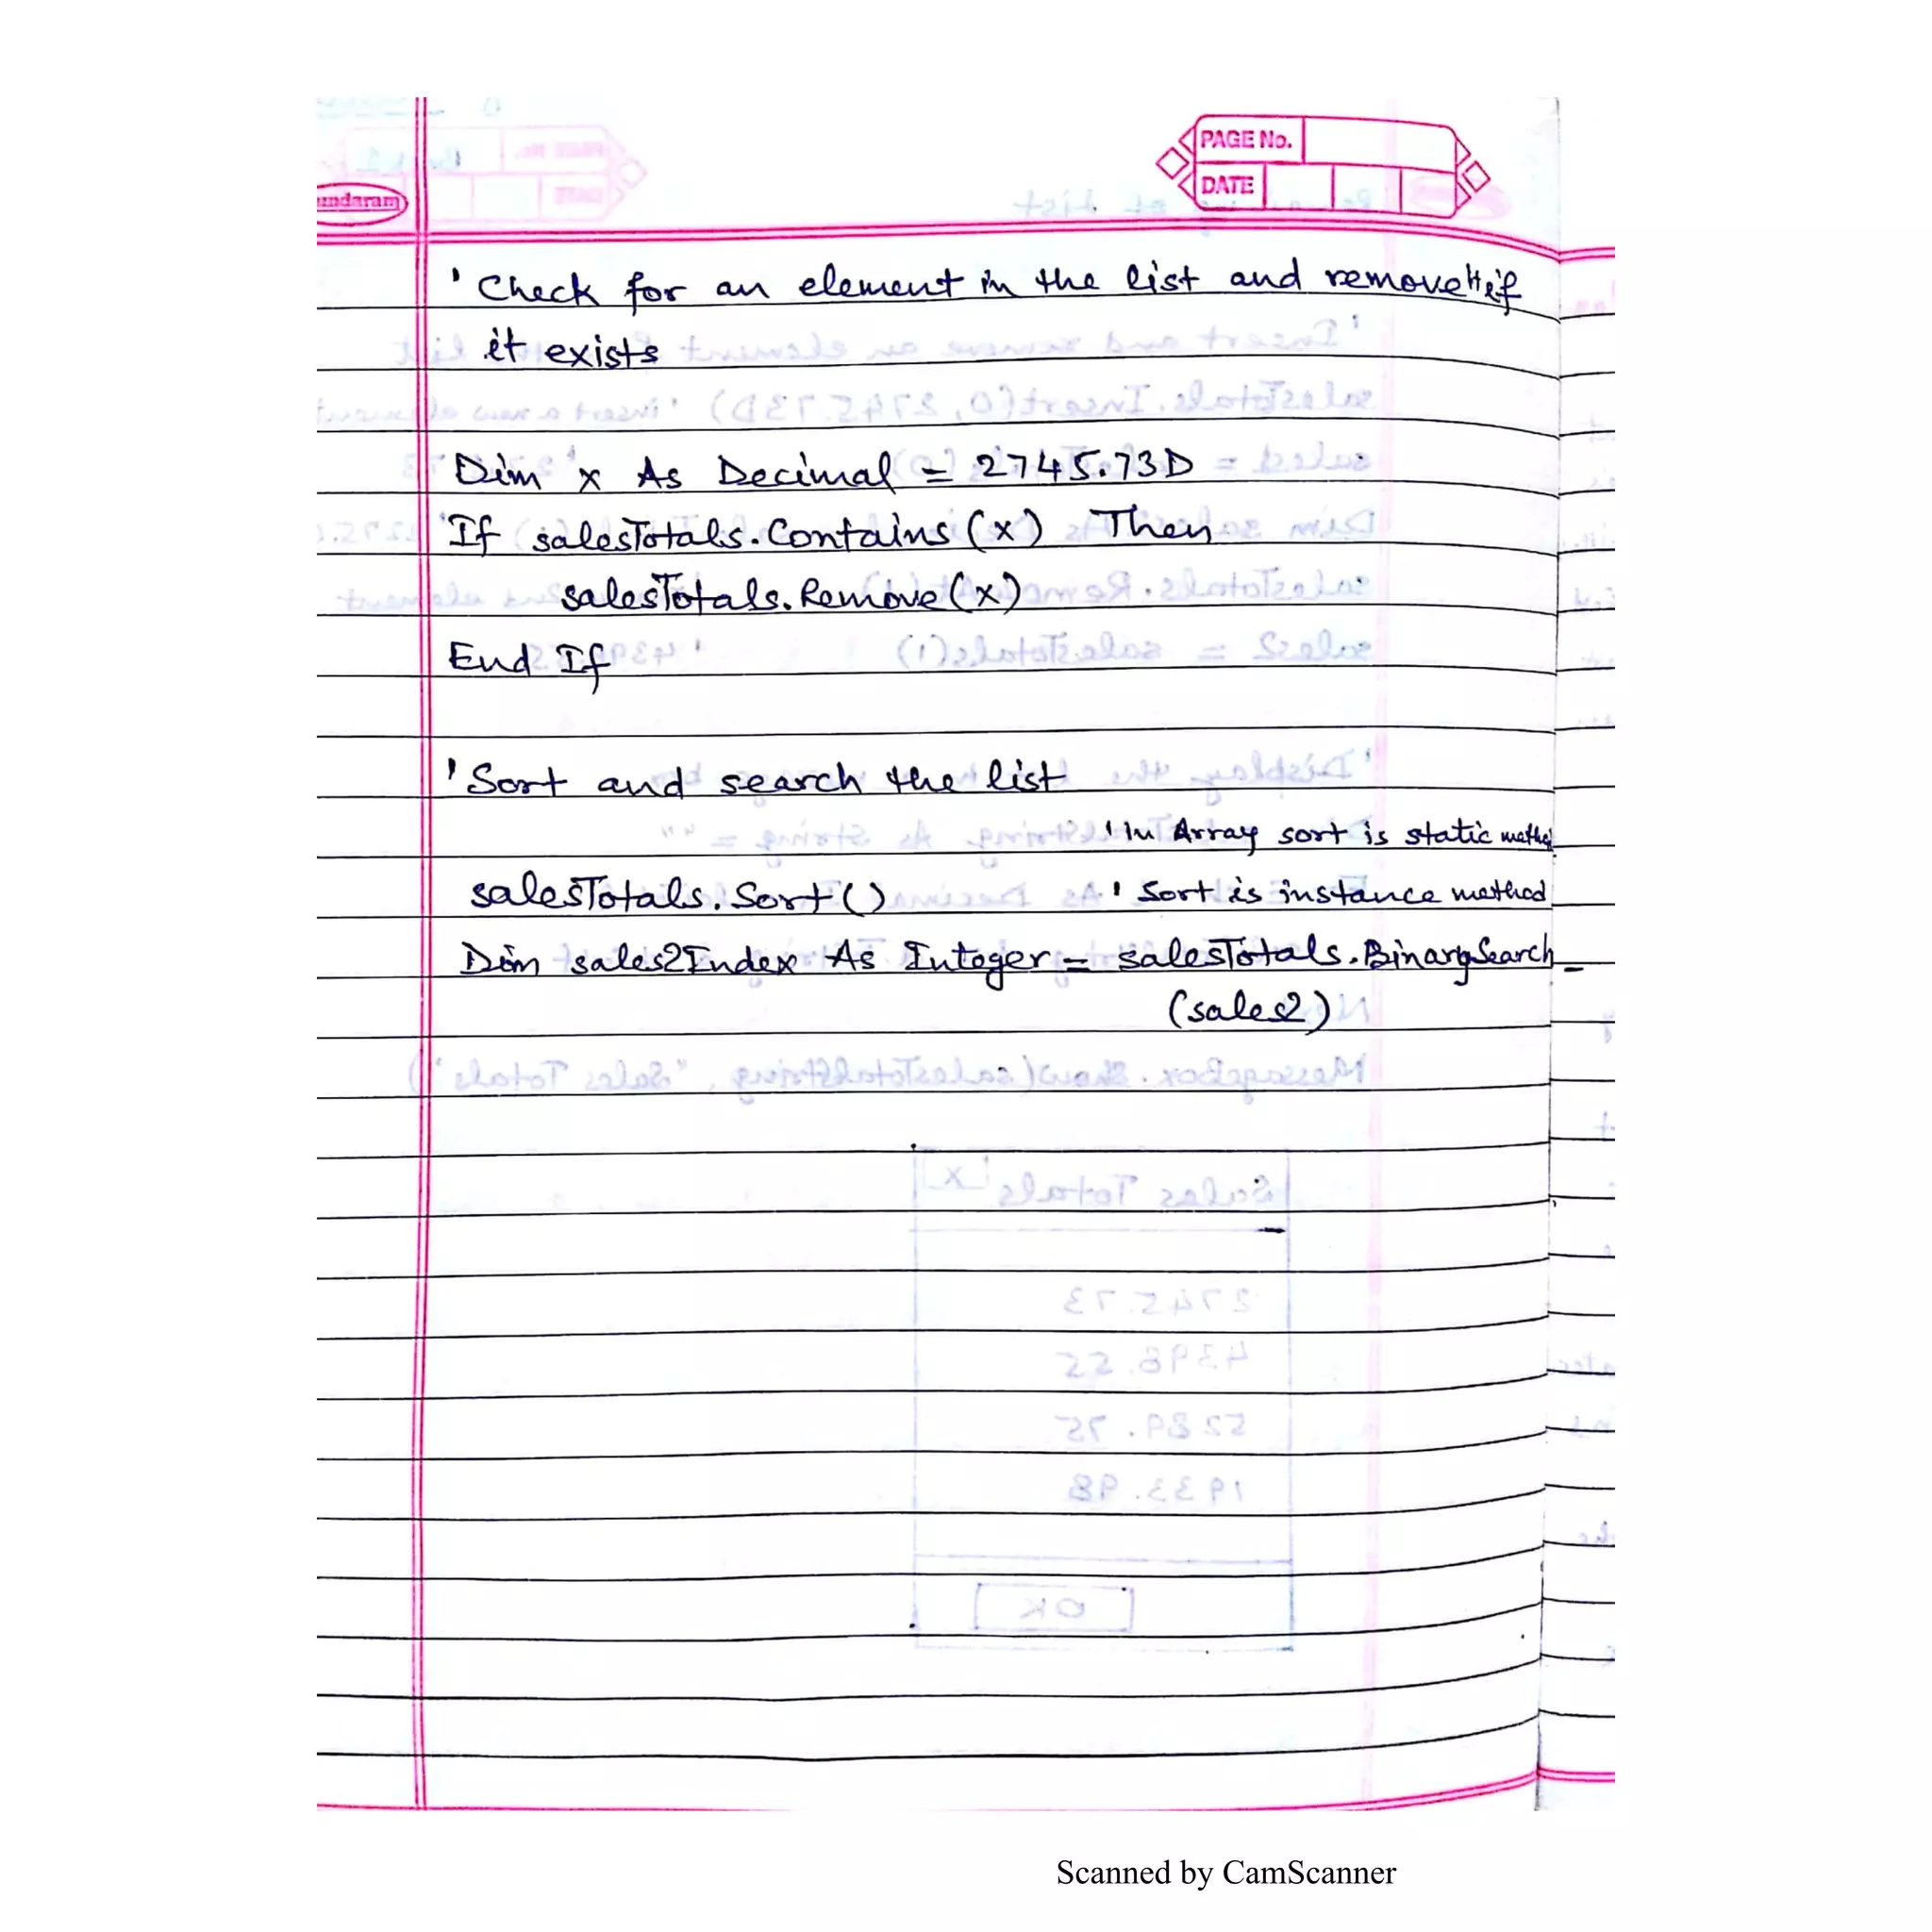 PAGE No.
DATE
undaram
' Check for an element in the list and remove it if
it exists
Dim x As Decimal = 2745.73D
If salesTotals.Contains (x) Then
salesTotals.Remove (x)
End If
' Sort and search the list
' In Array sort is static
salesTotals.Sort ( ) ' Sort is instance method
Dim sales2Index As Integer = salesTotals.BinarySearch _
(sales2)
Scanned by CamScanner